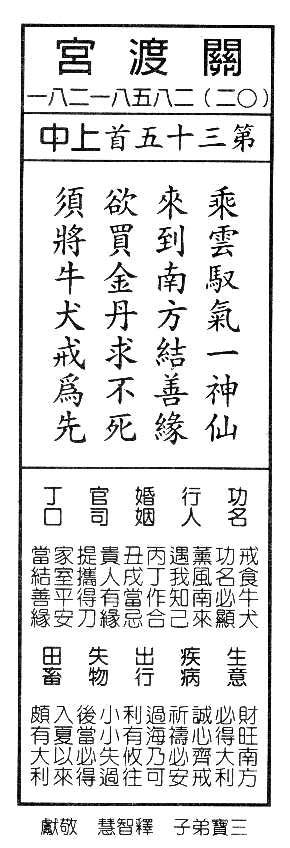 關渡宮
（〇二）二八五八一二八一
第三十五首上中
乘雲馭氣一神仙
來到南方結善緣
欲買金丹求不死
須將牛犬戒爲先
功名
戒食牛犬
功名必顯
行人
薰風南來
遇我知己
婚姻
丙丁作合
丑戌當忌
官司
貴人有緣
提攜得刀
丁口
家室平安
當結善緣
生意
財旺南方
必得大利
疾病
誠心齊戒
祈禱必安
出行
過海乃可
利有攸往
失物
小小失過
後當必得
田畜
入夏以來
頗有大利
三寶弟子 釋智慧 敬獻